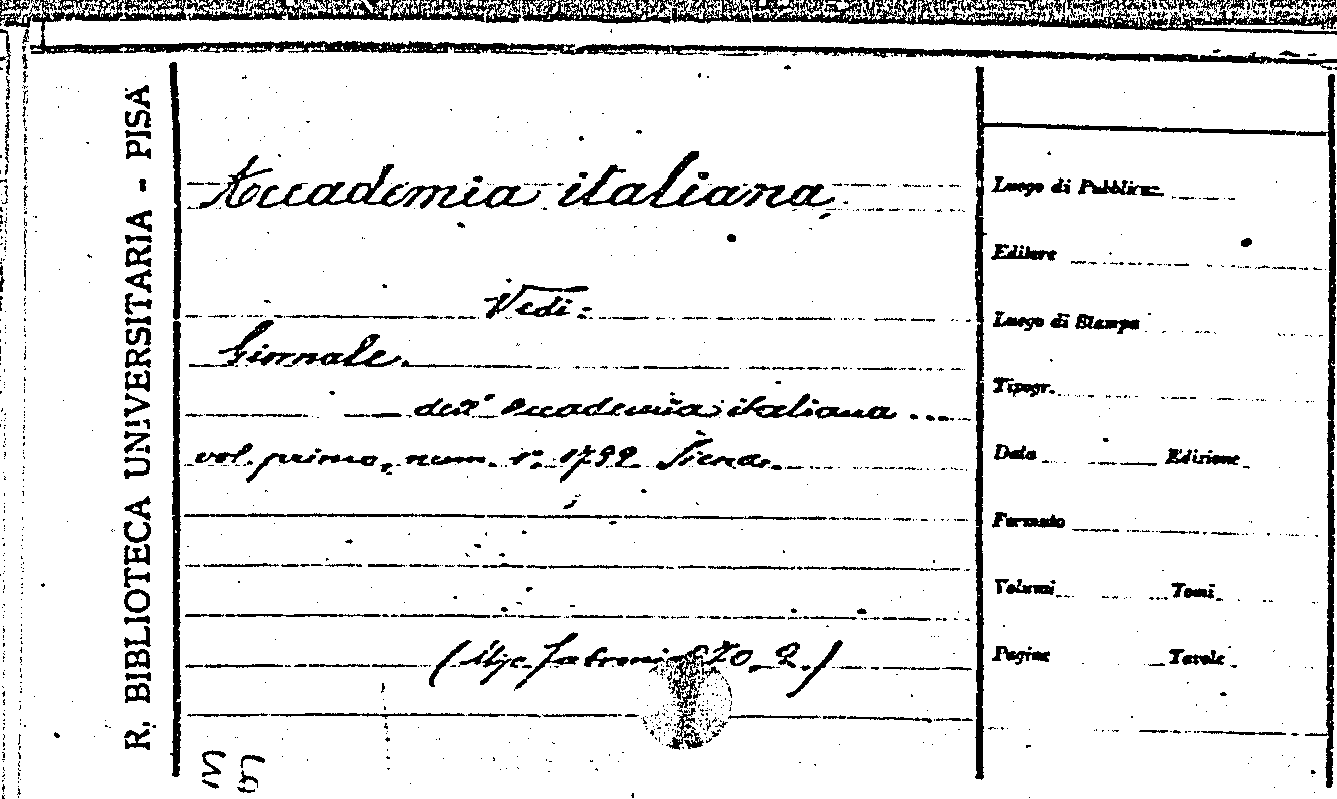 R. BIBLIOTECA UNIVERSITARIA - PISA
Accademia italiana,
Vedi:
Giornale.
dell' Accademia italiana ...
vol. primo, num. 1º. 1799. Siena.
( 270. 2.)
Luogo di Pubblicaz.
Editore
Luogo di Stampa
Tipogr.
Data Edizione
Formato
Volumi Tomi
Pagine Tavole